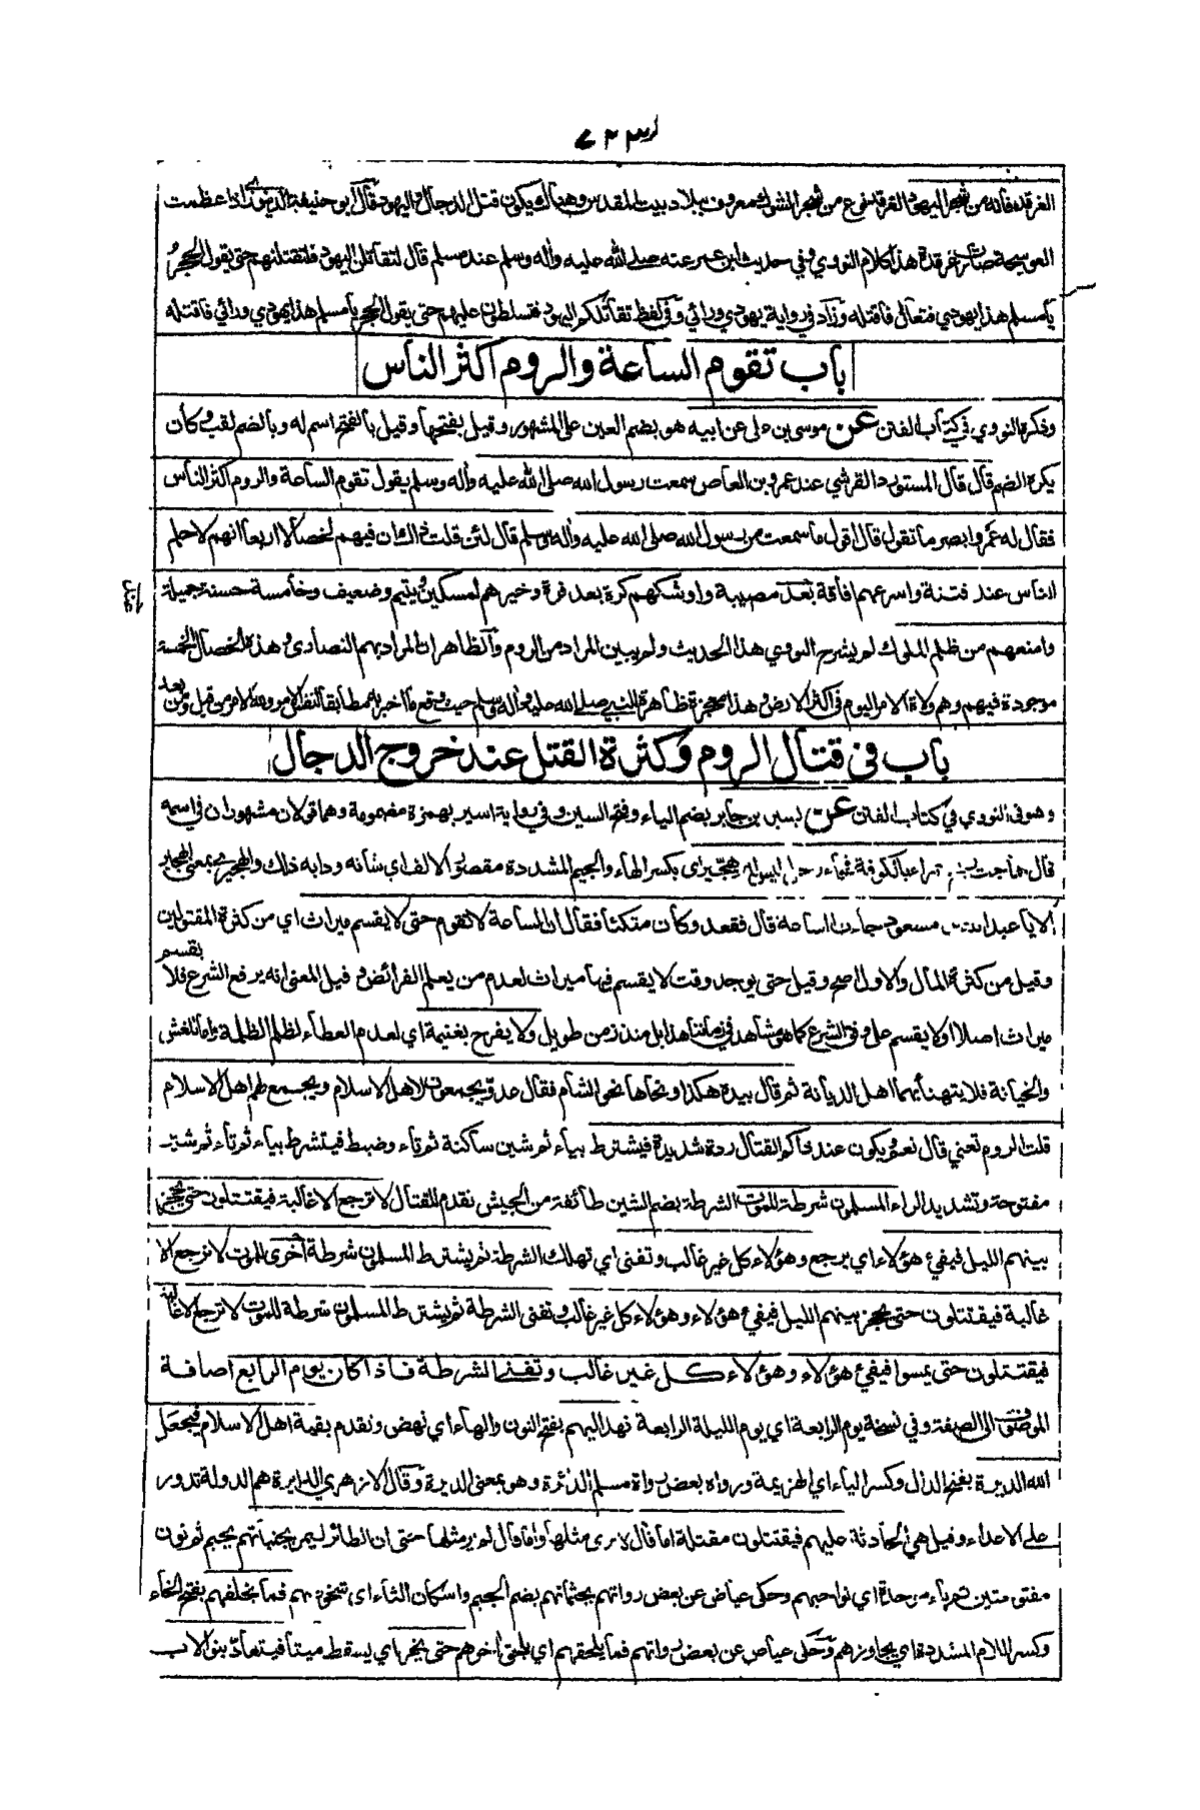 ٧٢٣
الغرقد فأنه من شجر اليهود الغرقد نوع من شجر الشوك معروف ببلاد بيت المقدس وهناك يكون قتل الدجال واليهود قال أبو حنيفة الدينوري اذا عظمت
العوسجة صارت غرقدة هذا كلام النووي وفي حديث ابن عمر عنه صلى الله عليه وأله وسلم عند مسلم قال لتقاتلن اليهود فلتقتلنهم حتى يقول الحجر
يأ مسلم هذا يهودي فتعال فأقتله وزاد في رواية يهودي ورائي وفي لفظ تقأتلكم اليهود فتسلطون عليهم حتى يقول الحجر يأ مسلم هذا يهودي ورائي فاقتله
باب تقوم الساعة والروم أكثر الناس
وذكره النووي في كتأب الفتن عن موسى بن علي عن ابيه هو بضم العين على المشهور وقيل بفتحها وقيل بالفتح اسم له وبالضم لقب وكأن
يكره الضم قال قال المستورد القرشي عند عمرو بن العاص سمعت رسول الله صلى الله عليه وأله وسلم يقول تقوم الساعة والروم أكثر الناس
فقال له عمرو ابصر مأ تقول قال اقول مأ سمعت من رسول الله صلى الله عليه وأله وسلم قال لئن قلت ذاك ان فيهم لخصالا اربعا انهم لاحلم
الناس عند فتنة واسرعهم افاقة بعد مصيبة واوشكهم كرة بعد فرة وخيرهم لمسكين ويتيم وضعيف وخأمسة حسنة جميلة
وامنعهم من ظلم الملوك لم يشرح النووي هذا الحديث ولم يبين المراد من الروم والظاهر ان المراد بهم النصارى وهذه الخصال الخمسة
موجودة فيهم وهم ولاة الامر اليوم في أكثر الارض وهذا معجزة ظأهرة للنبي صلى الله عليه وأله وسلم حيث وقع مأ اخبر به مطأبقا لنفس الامر ولله الامر من قبل ومن بعد
باب في قتال الروم وكثرة القتل عند خروج الدجال
وهو في النووي في كتاب الفتن عن يسير بن جأبر بضم الياء وفتح السين وفي رواية اسير بهمزة مضمومة وهما قولان مشهوران في اسمه
قال هأجت ريح حمراء بالكوفة فجأء رجل ليس له هجيرى بكسر الهأء والجيم المشددة مقصور الالف اي شأنه ودابه ذلك والهجير بمعنى الهجير
الا يأ عبد الله بن مسعود جأءت الساعة قال فقعد وكأن متكئا فقال ان الساعة لا تقوم حتى لا يقسم ميراث اي من كثرة المقتولين
وقيل من كثرة المال والاول اصح وقيل حتى يوجد وقت لا يقسم فيها ميراث لعدم من يعلم الفرائض وقيل المعنى انه يرفع الشرع فلا يقسم
ميراث اصلا او لا يقسم على وفق الشرع كما هو مشأهد في زمأننا هذا بل منذ زمن طويل ولا يفرح بغنيمة اي لعدم العطأء لظلم الظلمة وامأ للغش
والخيانة فلا يتهنأ بهما اهل الديأنة ثم قال بيده هكذا ونحأها نحو الشأم فقال عدو يجمعون لاهل الاسلام ويجمع لهم اهل الاسلام
قلت الروم تعني قال نعم ويكون عند ذاكم القتال ردة شديدة فيشترط بيأء ثم شين سأكنة ثم تأء وضبط فيتشرط بيأء ثم تأء ثم شين
مفتوحة وتشديد الراء المسلمون شرطة للموت الشرطة بضم الشين طأئفة من الجيش تقدم للقتال لا ترجع الا غالبة فيقتتلون حتى يحجز
بينهم الليل فيفئ هؤلاء اي يرجع وهؤلاء كل غير غالب وتفنى اي تهلك الشرطة ثم يشترط المسلمون شرطة أخرى للموت لا ترجع الا
غالبة فيقتتلون حتى يحجز بينهم الليل فيفئ هؤلاء وهؤلاء كل غير غالب وتفنى الشرطة ثم يشترط المسلمون شرطة للموت لا ترجع الا غالبة
فيقتتلون حتى يمسوا فيفئ هؤلاء وهؤلاء كل غير غالب وتفنى الشرطة فاذا كان يوم الرابع اضافة
الموصوف الى الصفة وفي نسخة يوم الرابعة اي يوم الليلة الرابعة نهد اليهم بفتح النون والهأء اي نهض وتقدم بقية اهل الاسلام فيجعل
الله الديرة بفتح الدال وكسر اليأء اي الهزيمة ورواه بعض رواة مسلم الدائرة وهو بمعنى الديرة وقال الازهري الدايرة هم الدولة تدور
على الاعداء وقيل هي الحأدثة عليهم فيقتتلون مقتلة اما قال لا يرى مثلها واما قال لم ير مثلها حتى ان الطائر ليمر بجنبأتهم بجيم ثم نون
مفتوحتين ثم بأء موحدة اي نواحيهم وحكى عياض عن بعض رواتهم بجثمأنهم بضم الجيم واسكان الثأء اي شخوصهم فمأ يخلفهم بفتح الخأء
وكسر اللام المشددة اي يجاوزهم وحكى عياض عن بعض رواتهم فمأ يلحقهم اي يلحق أخرهم حتى يخر اي يسقط ميتأ فيتعأد بنو الاب